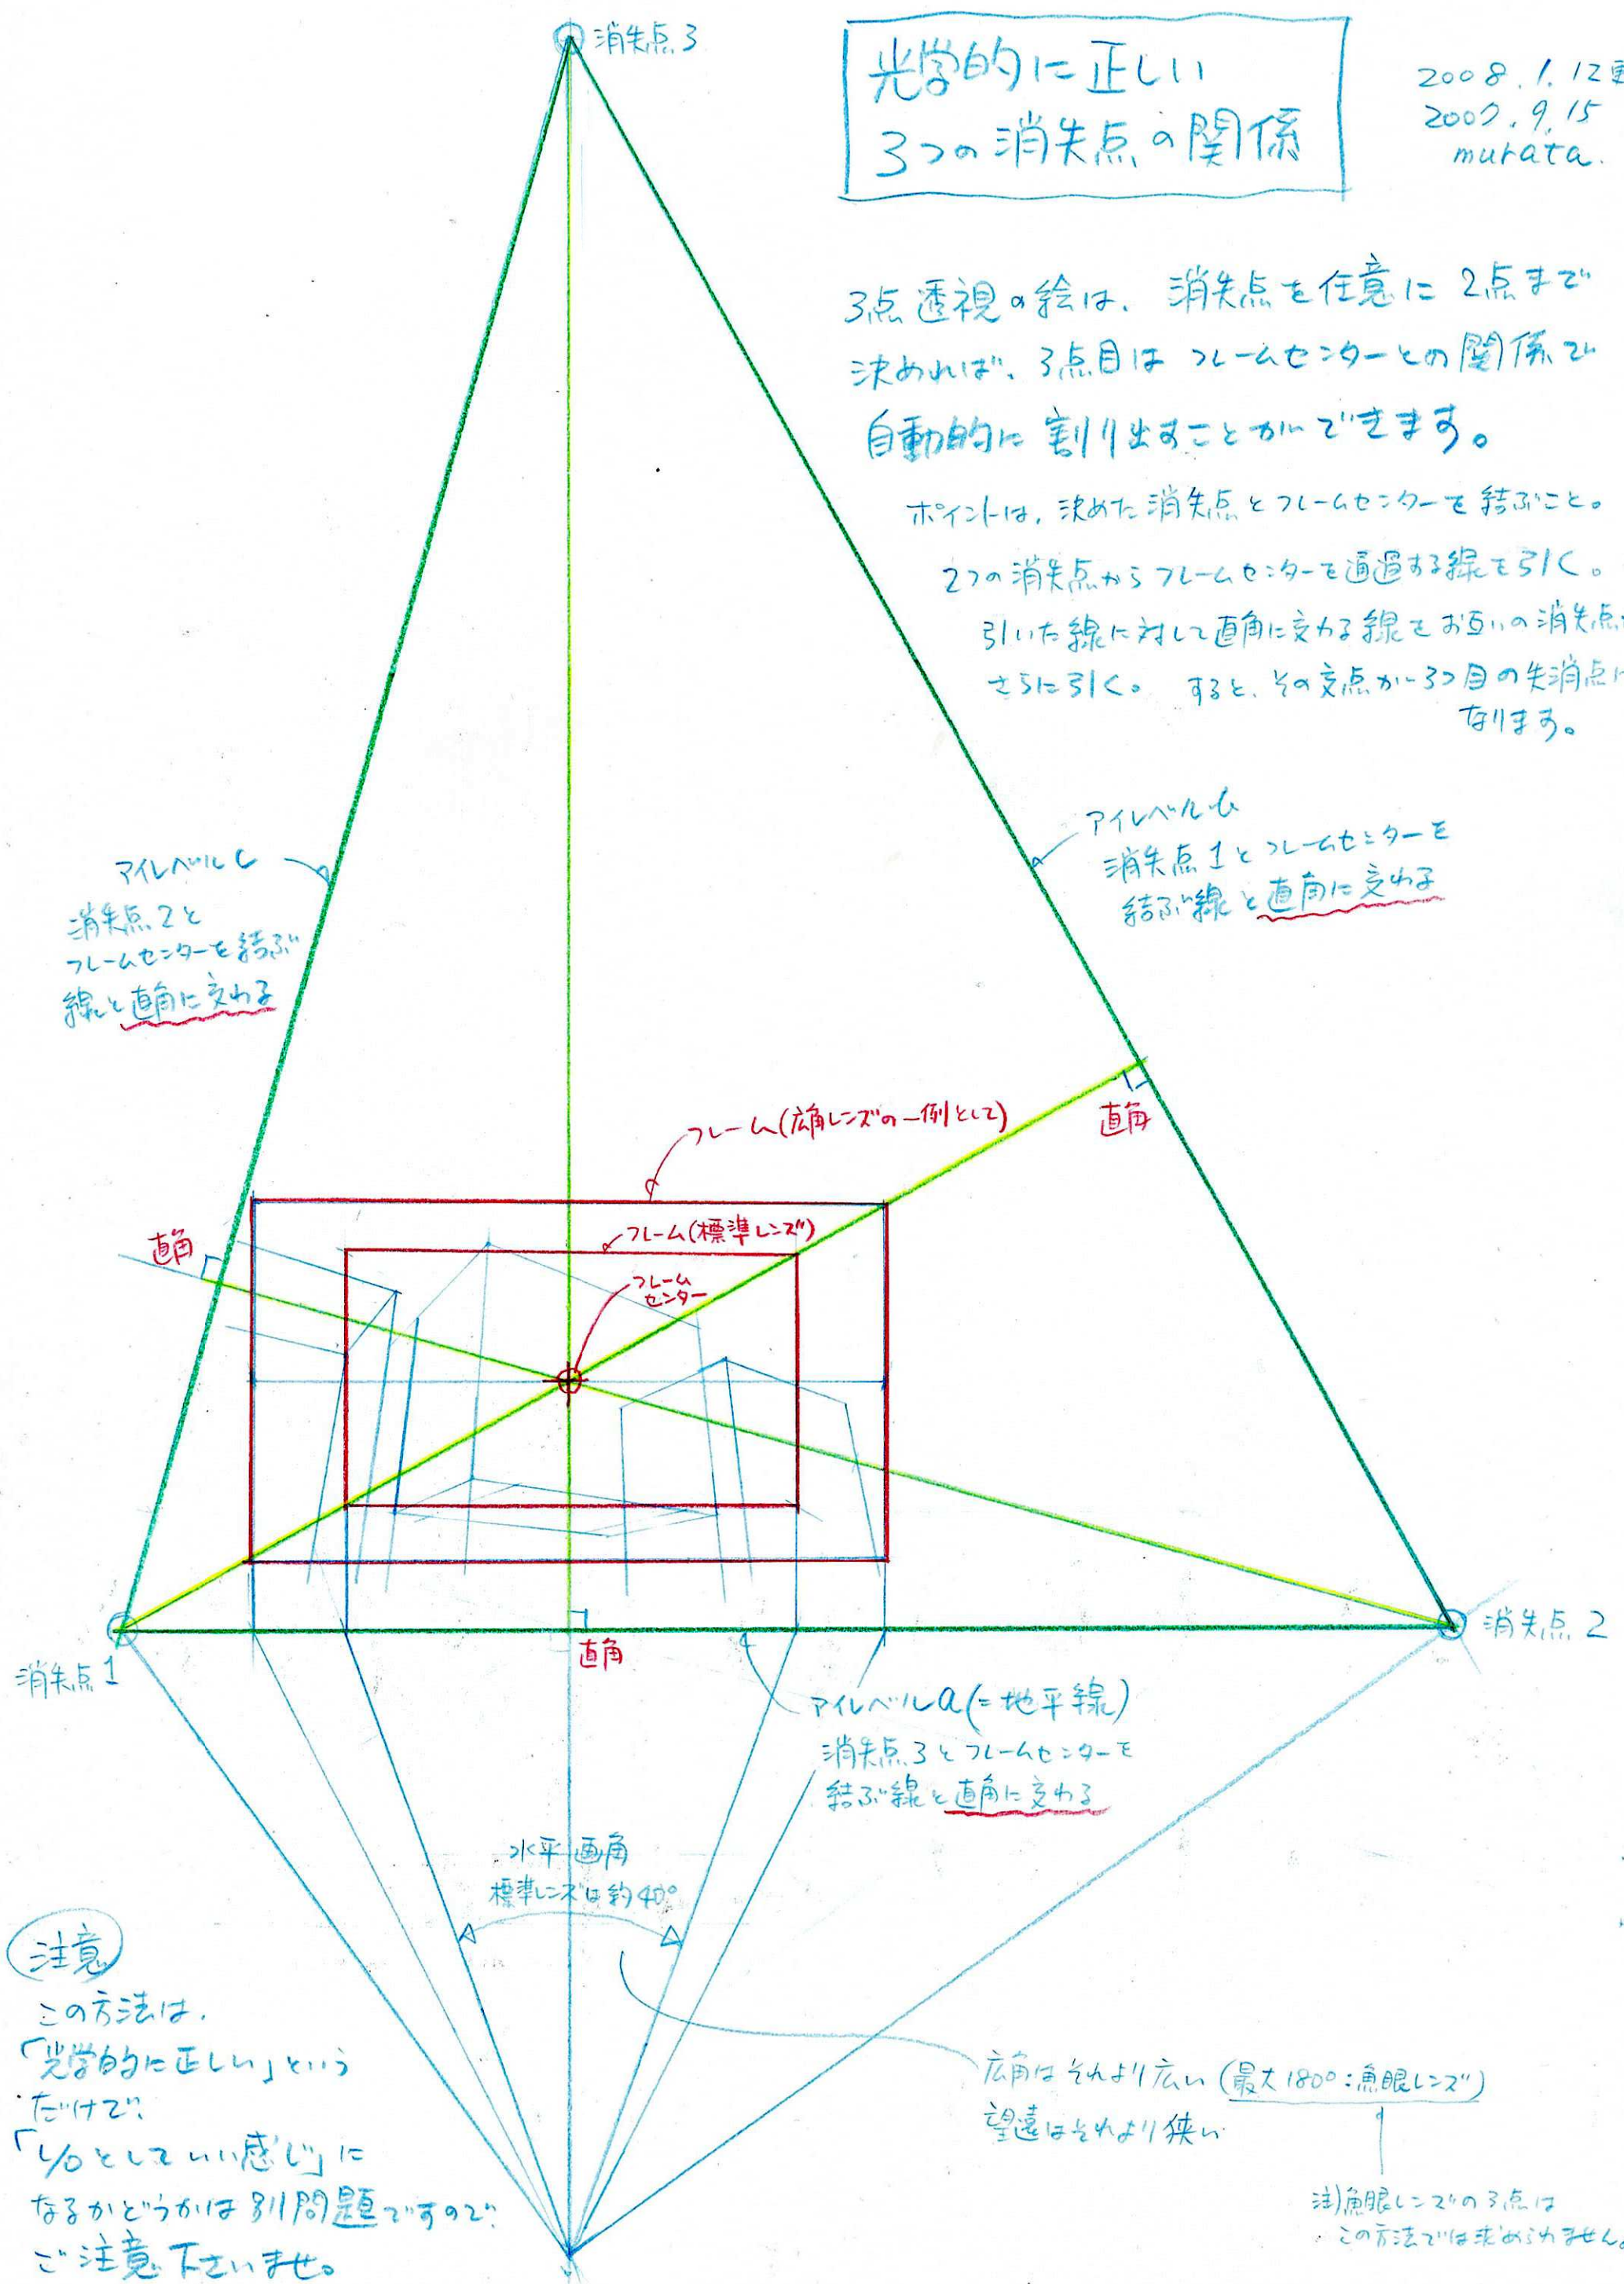 消失点3
光学的に正しい
3つの消失点の関係
2008.1.12
2007.9.15
murata.
3点透視の絵は、消失点を任意に2点まで
決めれば、3点目はフレームセンターとの関係で
自動的に割り出すことができます。
ポイントは、決めた消失点とフレームセンターを結ぶこと。
2つの消失点からフレームセンターを通過する線を引く。
引いた線に対して直角に交わる線をお互いの消失点
さらに引く。すると、その交点が3つ目の失消点に
なります。
アイレベルb
消失点1とフレームセンターを
結ぶ線と直角に交わる
アイレベルc
消失点2と
フレームセンターを結ぶ
線と直角に交わる
直角
フレーム(広角レンズの一例として)
直角
フレーム(標準レンズ)
フレーム
センター
消失点1
直角
消失点2
アイレベルa(=地平線)
消失点3とフレームセンターを
結ぶ線と直角に交わる
水平画角
標準レンズは約40°
注意
この方法は、
「光学的に正しい」という
だけで、
「L/Oとしていい感じ」に
なるかどうかは別問題ですので、
ご注意下さいませ。
広角はそれより広い(最大180°:魚眼レンズ)
望遠はそれより狭い
注)魚眼レンズの3点は
この方法では求められません。